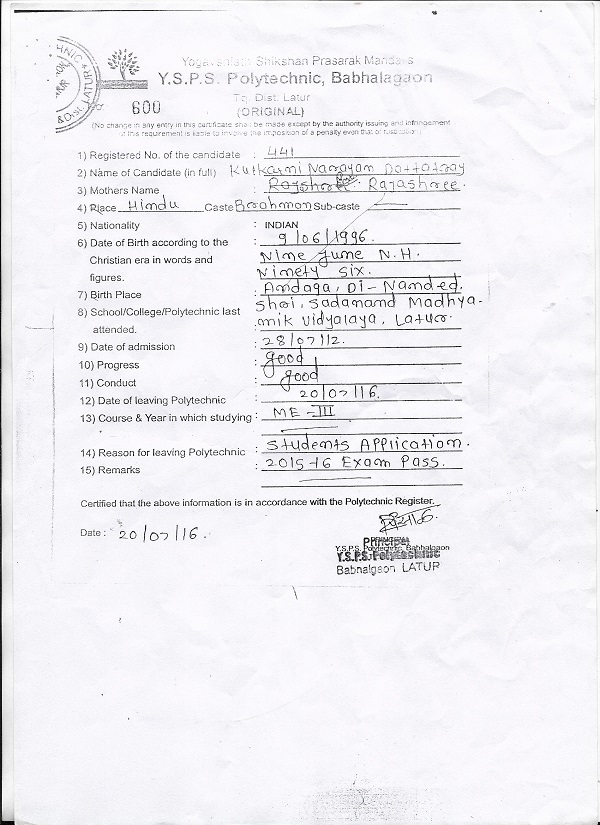 HNIC *
& Dist. LATUR
Shikshan Prasarak Mandal's
Y.S.P.S. Polytechnic, Babhalagaon
Tq. Dist. Latur
600
(ORIGINAL)
(No change in any entry in this certificate shall be made except by the authority issuing and infringement
of this requirement is liable to involve the imposition of a penalty even that of rustication)
1) Registered No. of the candidate : 441
2) Name of Candidate (in full) : Kulkarni Narayan Dattatray
3) Mothers Name : Rajashree.
4) Race Hindu Caste Brahmon Sub-caste
5) Nationality : INDIAN
6) Date of Birth according to the : 9/06/1996.
Christian era in words and Nine June N.H.
figures. Ninety six.
7) Birth Place : Andaga, Di- Nanded.
8) School/College/Polytechnic last : Shri. Sadanand Madhya-
attended. mik Vidyalaya, Latur.
9) Date of admission : 28/07/12.
10) Progress : good
11) Conduct : good
12) Date of leaving Polytechnic : 20/07/16.
13) Course & Year in which studying : ME-III
14) Reason for leaving Polytechnic : Students Application.
15) Remarks : 2015-16 Exam Pass.
Certified that the above information is in accordance with the Polytechnic Register.
Date : 20/07/16.
Principal
Y.S.P.S. Polytechnic, Babhalgaon
Y.S.P.S. Polytechnic
Babnalgaon LATUR